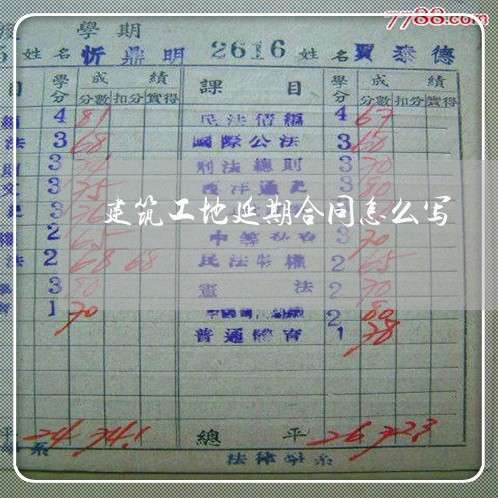 7788.com
學期
5 姓名 忻鼎明 2616 姓名 賈泰德
目 學分 成績 課目 學分 成績
分數 扣分 實得 分數 扣分 實得
4 81 民法債編 4 67
法 3 68 國際公法 3 60
3 刑法總則 3 70
3 75 西洋通史 3 80
建筑工地延期合同怎么写
2 65 3 70
法 2 68 68 民法物權 2 65
3 80 憲法 2 70
1 70 2 80
普通體育 1 78
平 24 74.1 總平 26 72.3
系 法律學系